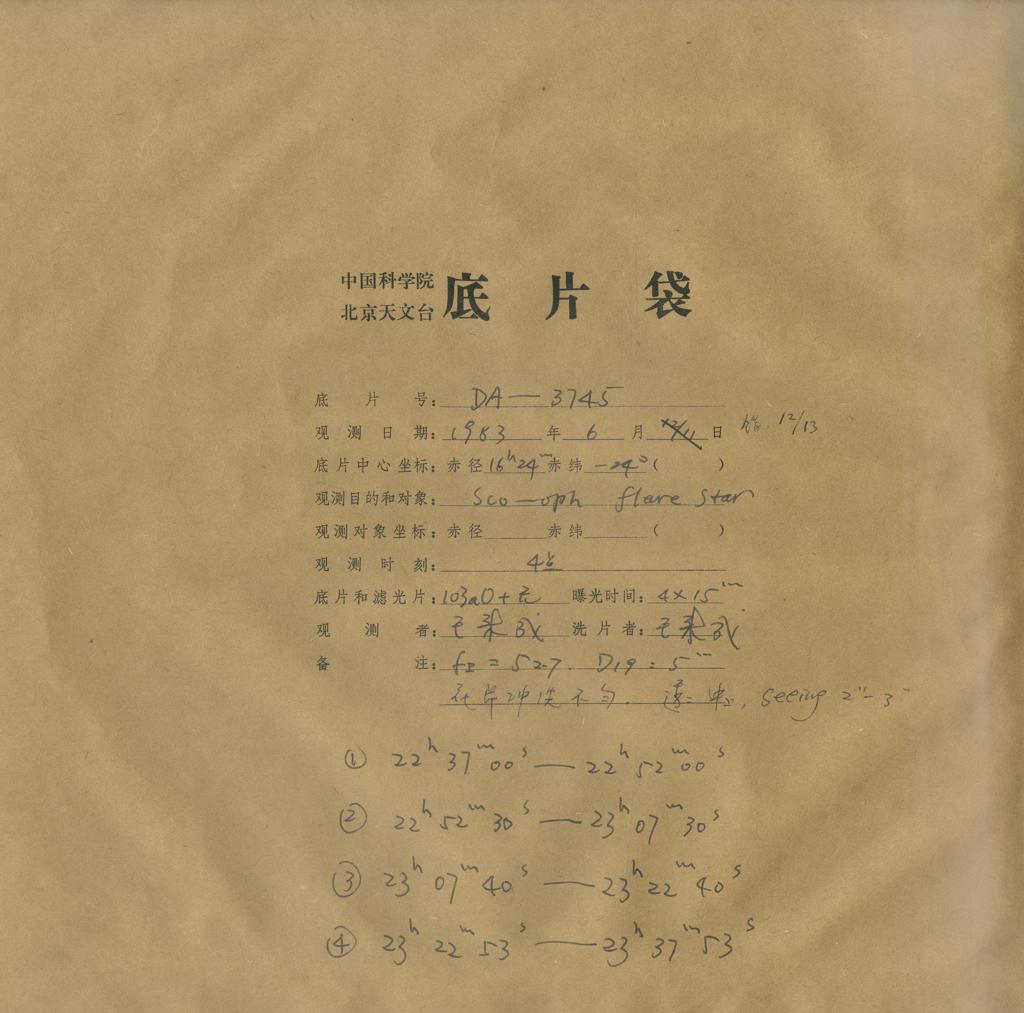 中国科学院
北京天文台 底片袋
底片号: DA—3745
观测日期: 1983 年 6 月 日 12/13
底片中心坐标: 赤径 16h24m 赤纬 -24°( )
观测目的和对象: Sco—oph flare star
观测对象坐标: 赤径 赤纬 ( )
观测时刻: 4
底片和滤光片: 103aO+无 曝光时间: 4×15m
观测者: 王 洗片者: 王
备注: = 527. D19: 5m
片冲洗不匀. seeing 2"-3"
① 22h 37m 00s — 22h 52m 00s
② 22h 52m 30s — 23h 07m 30s
③ 23h 07m 40s — 23h 22m 40s
④ 23h 22m 53s — 23h 37m 53s